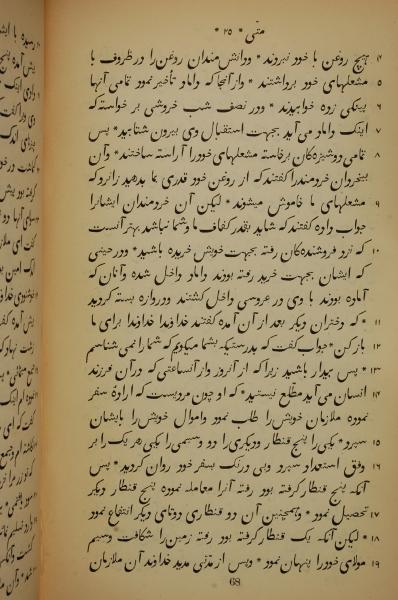 متی * ۲۵ *
۴ هیچ روغن با خود نبردند * ودانش‌مندان روغن را در ظروف با
۵ مشعلهای خود برداشتند * وازآنجا که داماد تأخیر نمود تمامی آنها
۶ پینکی زده خوابیدند * ودر نصف شب خروشی بر خواسته که
۷ اینک داماد می‌آید بجهت استقبال وی بیرون شتابید * پس
۸ تمامی دوشیزه‌کان برخاسته مشعلهای خود را آراسته ساختند * وآن
بیخردان خردمندرا کفتند که از روغن خود قدری بما بدهید زانرو که
۹ مشعلهای ما خاموش میشوند * لیکن آن خردمندان ایشانرا
جواب داده کفتند که شاید بقدر کفاف ما وشما نباشد بهتر آنست
۱۰ که نزد فروشنده‌کان رفته بجهت خویش خریده باشید * ودر حینی
که ایشان بجهت خرید رفته بودند داماد داخل شده وآنان که
آماده بودند با وی در عروسی داخل کشتند ودروازه بسته کردید
۱۱ * که دختران دیکر بعد از آن آمده کفتند خداوندا خداوندا برای ما
۱۲ باز کن * جواب کفت که بدرستیکه بشما میکویم که شما را نمی شناسم
۱۳ * پس بیدار باشید زیرا که از آنروز واز آنساعتی که در آن فرزند
۱۴ انسان می‌آید مطلع نیستید * که او چون مردیست که ارادهٔ سفر
نموده ملازمان خویش را طلب نمود واموال خویش را بایشان
۱۵ سپرد * یکی را پنج قنطار ودیکری را دو وسیمی را یکی هر یک را بر
۱۶ وفق استعداد سپرد وبی درنک بسفر خود روان کردید * پس
آنکه پنج قنطار کرفته بود رفته آنرا معامله نموده پنج قنطار دیکر
۱۷ تحصیل نمود * وهمچنین آن دو قنطاری دوتای دیکر انتفاع نمود
۱۸ * لیکن آنکه یک قنطار کرفته بود رفته زمین را شکافت وسیم
۱۹ مولای خود را پنهان نمود * وپس از مدتی مدید خداوند آن ملازمان
68